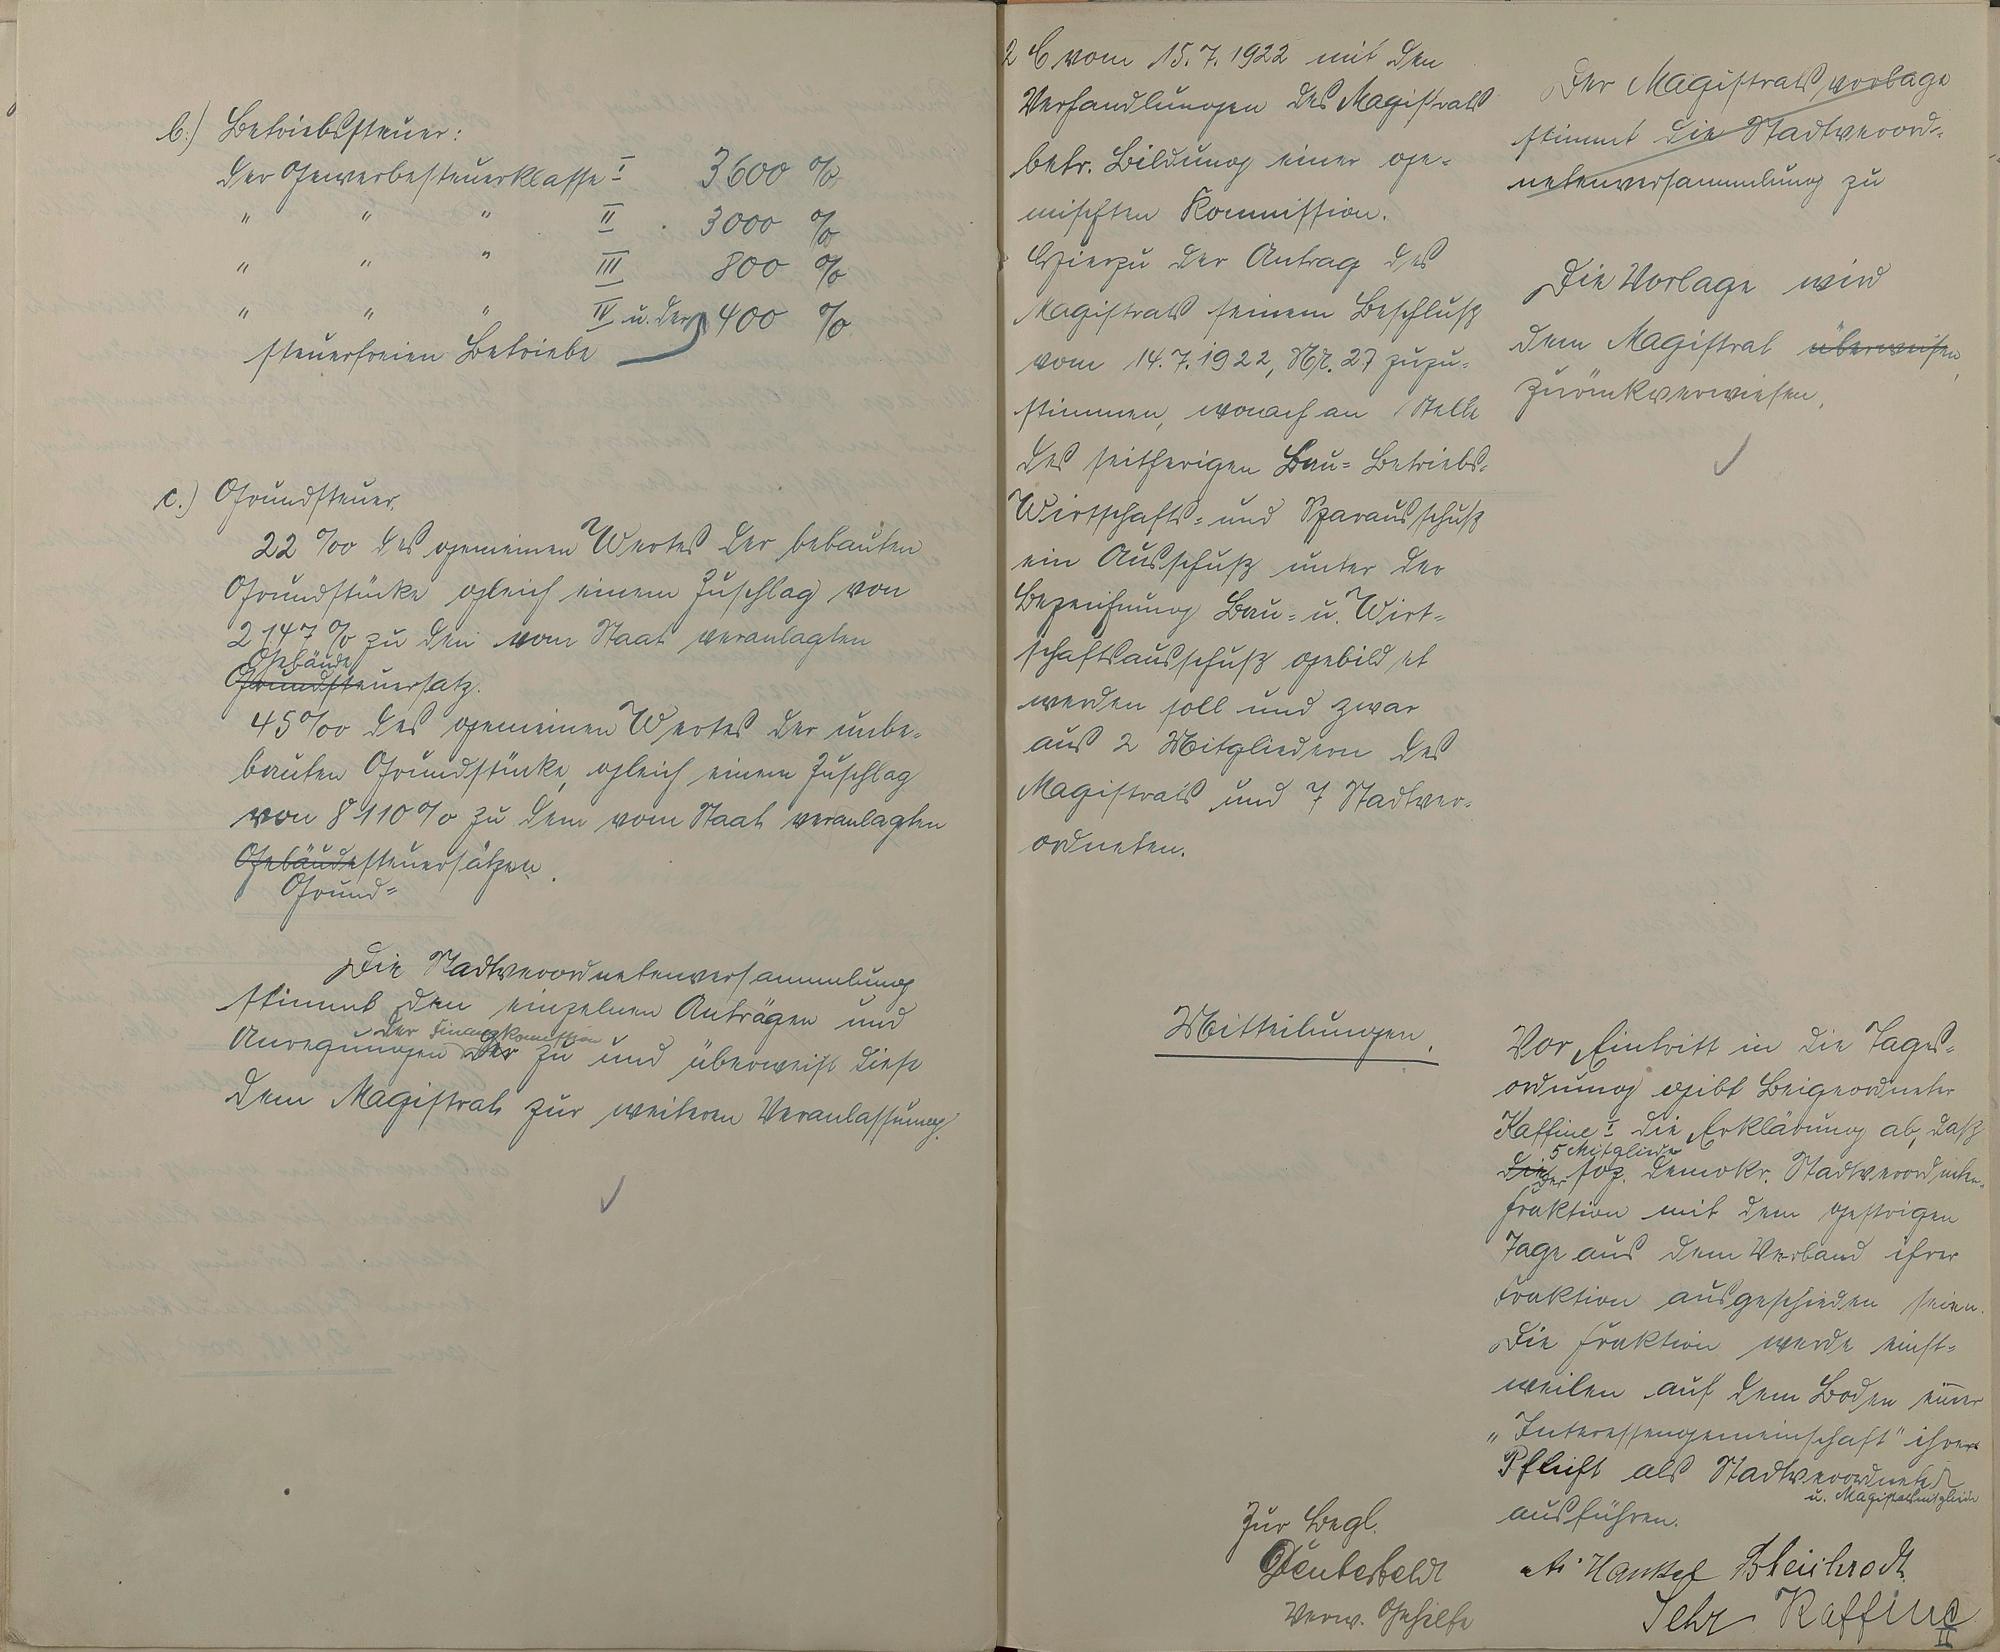 b.) Betriebssteuer:
der Gewerbesteuerklasse I 3600 %
" " " II . 3000 %
" " " III 800 %
" " " IV u. der 400 %
steuerfreien Betriebe
c.) Grundsteuer.
22 ‰ des gemeinen Wertes der bebauten
Grundstücke gleich einem Zuschlag von
2147 % zu den vom Staat veranlagten
Gebäude
Grundsteuersatz.
45 ‰ des gemeinen Wertes der unbe-
bauten Grundstücke, gleich einem Zuschlag
von 8110 % zu dem vom Staat veranlagten
Gebäudesteuersätzen.
Grund-
Die Stadtverordnetenversammlung
stimmt den einzelnen Anträgen und
der Finanzkommission
Anregungen der zu und überweist diese
dem Magistrat zur weiteren Veranlassung.
2 C vom 15.7.1922 mit den
Verhandlungen des Magistrats
betr. Bildung einer ge-
mischten Kommission.
Hierzu der Antrag des
Magistrats seinem Beschluß
vom 14.7.1922, Nr. 27 zuzu-
stimmen, wonach an Stelle
des seitherigen Bau- Betriebs-
Wirtschafts- und Sparausschuß
ein Ausschuß unter der
Bezeichnung Bau- u. Wirt-
schaftsausschuß gebildet
werden soll und zwar
aus 2 Mitgliedern des
Magistrats und 7 Stadtver-
ordneten.
Der Magistratsvorlage
stimmt die Stadtverord-
netenversammlung zu
Die Vorlage wird
dem Magistrat überweisen,
zurückverwiesen.
Mitteilungen.
Vor Eintritt in die Tages-
ordnung gibt Beigeordneter
Kaffine I die Erklärung ab, daß
5 Mitglieder
die der soz. demokr. Stadtverordneten-
fraktion mit dem gestrigen
Tage aus dem Verband ihrer
Fraktion ausgeschieden seien.
Die Fraktion werde einst-
weilen auf dem Boden einer
"Interessengemeinschaft" ihrer
Pflicht als Stadtverordnete
u. Magistratsmitglieder
ausführen.
Zur Begl.
Verw. Gehilfe
Hankel Bleibrodt
Sehr Kaffine
II